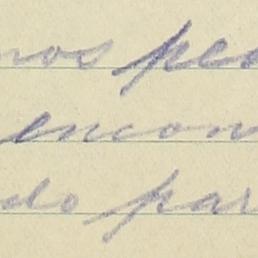 nos pe
encon
do par